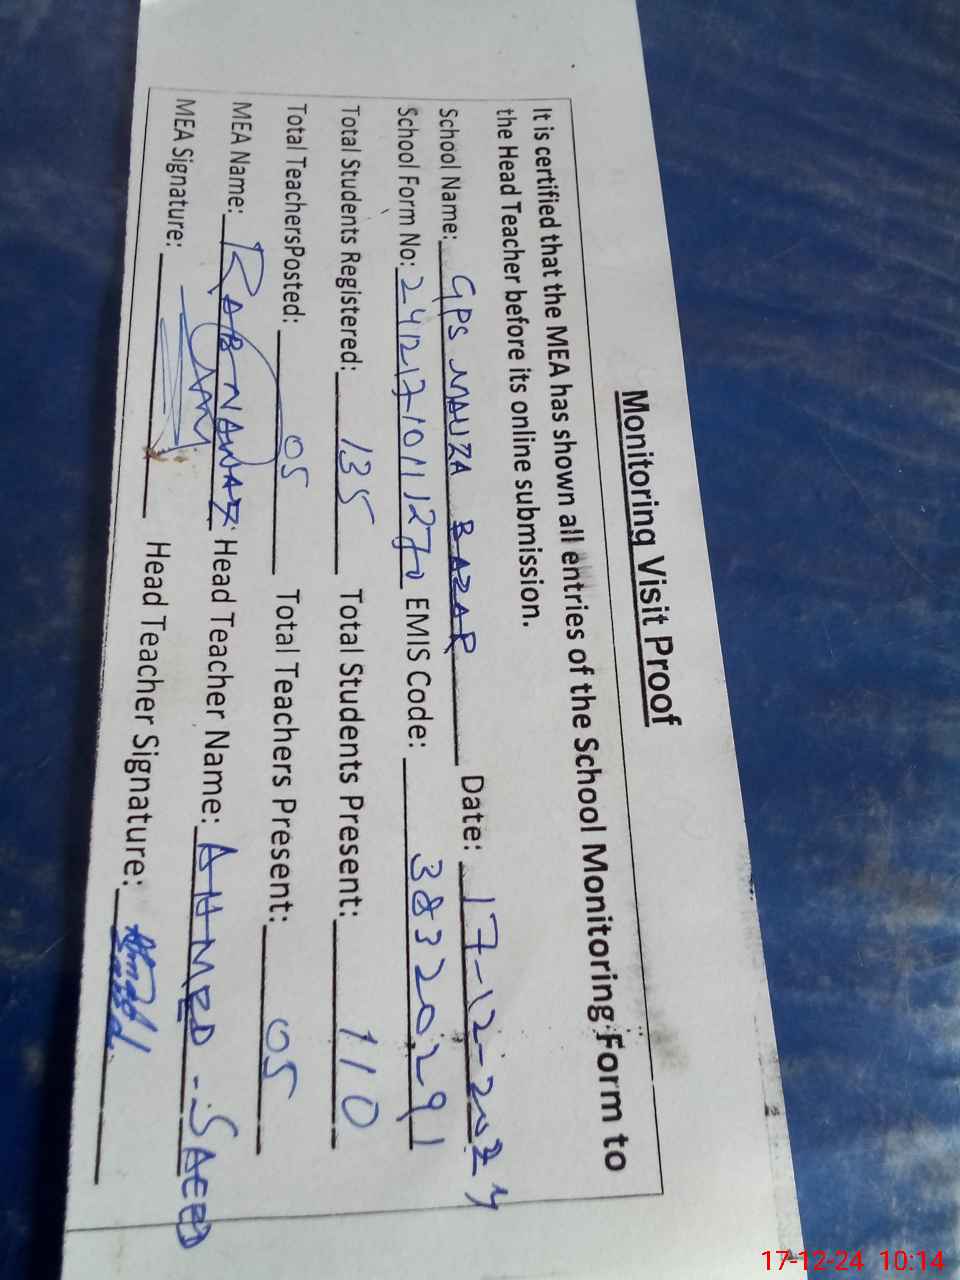 Monitoring Visit Proof
It is certified that the MEA has shown all entries of the School Monitoring Form to
the Head Teacher before its online submission.
School Name: GPS MAUZA BAZAR Date: 17-12-2024
School Form No: EMIS Code: 38320291
Total Students Registered: 135 Total Students Present: 110
Total TeachersPosted: 05 Total Teachers Present: 05
MEA Name: RAB NAWAZ Head Teacher Name: AHMED - SAEED
MEA Signature: Head Teacher Signature:
17-12-24 10:14